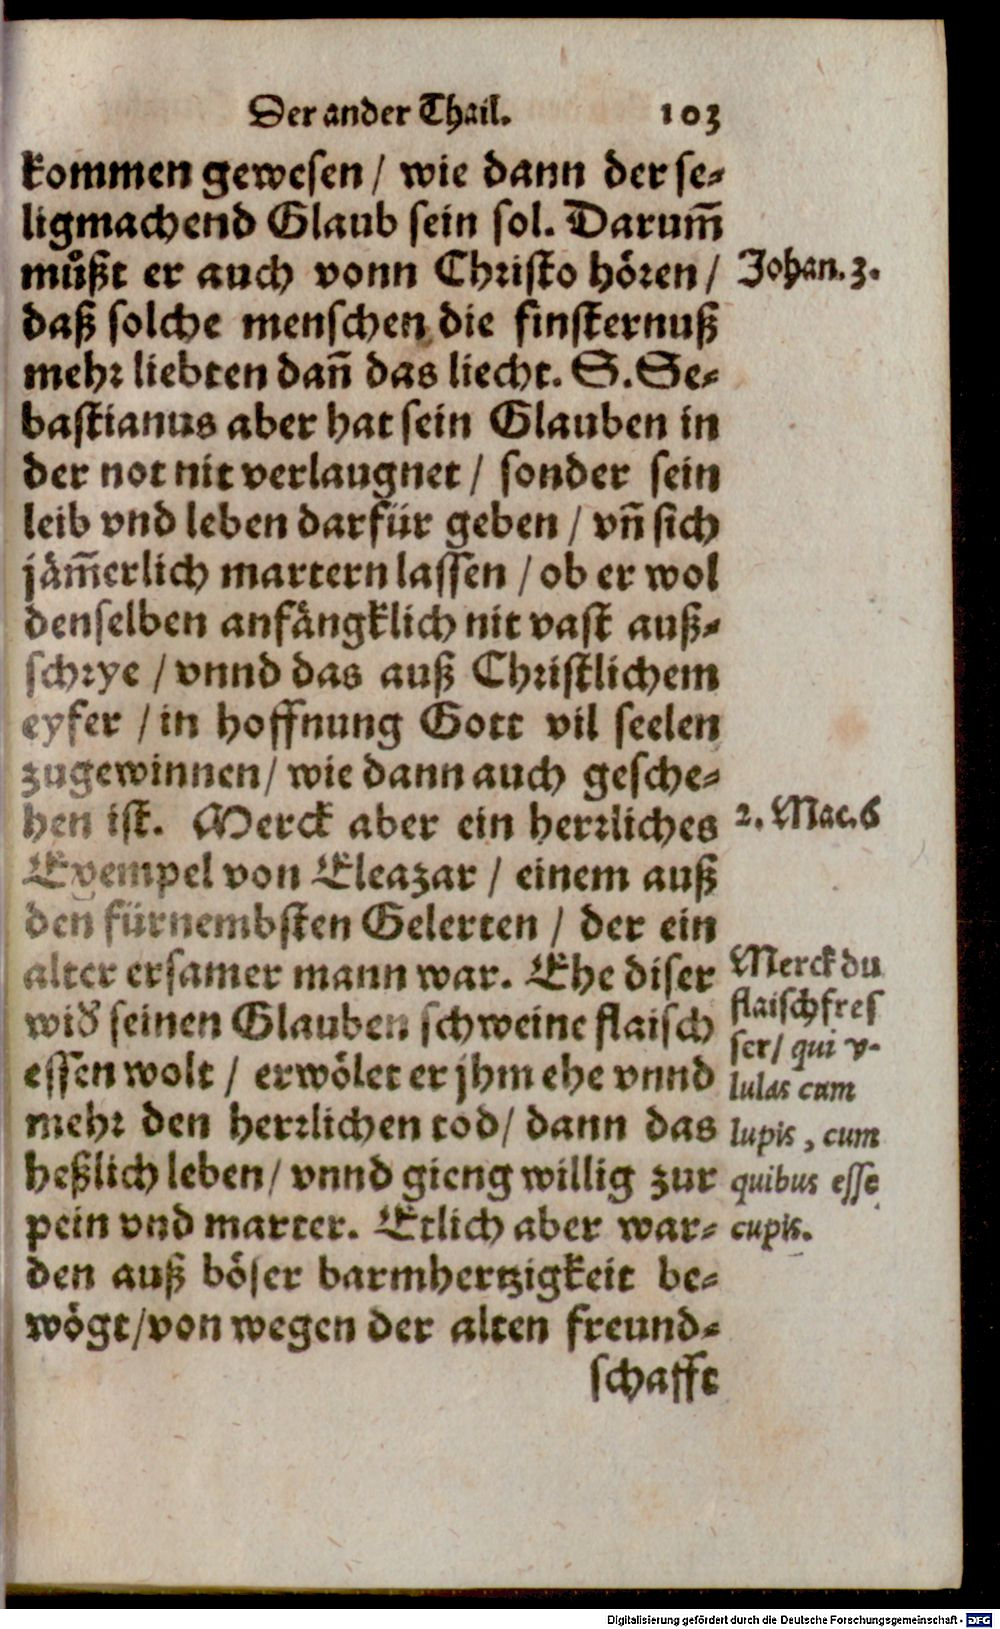 Der ander Thail. 103
kommen gewesen / wie dann der se-
ligmachend Glaub sein sol. Darum̄
můßt er auch vonn Christo hören /
daß solche menschen die finsternuß
mehr liebten dañ das liecht. S. Se-
bastianus aber hat sein Glauben in
der not nit verlaugnet / sonder sein
leib vnd leben darfür geben / vñ sich
jäm̄erlich martern lassen / ob er wol
denselben anfängklich nit vast auß-
schrye / vnnd das auß Christlichem
eyfer / in hoffnung Gott vil seelen
zugewinnen / wie dann auch gesche-
hen ist. Merck aber ein herrliches
Exempel von Eleazar / einem auß
den fürnembsten Gelerten / der ein
alter ersamer mann war. Ehe diser
wid̕ seinen Glauben schweine flaisch
essen wolt / erwölet er jhm ehe vnnd
mehr den herrlichen tod / dann das
heßlich leben / vnnd gieng willig zur
pein vnd marter. Etlich aber war-
den auß böser barmhertzigkeit be-
wögt / von wegen der alten freund-
schafft
Johan. 3.
2. Mac. 6
Merck du
flaischfres
ser / qui v-
lulas cum
lupis, cum
quibus esse
cupis.
Digitalisierung gefördert durch die Deutsche Forschungsgemeinschaft - DFG